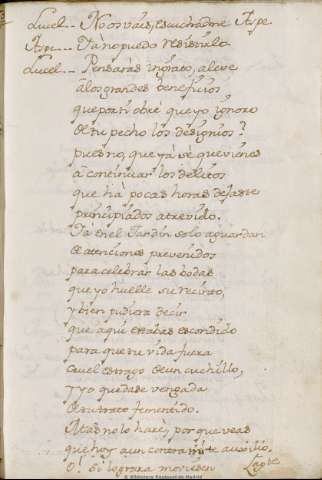 Lucel.... No os vais, escuchadme Aspe.
Aspe.... Ya no puedo resistirlo.
Lucel.... Pensarás ingrato, aleve
â los grandes beneficios
que por ti obré que yo ignoro
de tu pecho los designios?
pues no, que ya sé que vienes
â continuar los delitos
que hà pocas horas dejaste
principiados atrevido.
Ya en el Jardin solo aguardan
de atenciones prevenidos
para celebrar las bodas
que yo huelle su recinto,
y bien pudiera decir
que aqui estabas escondido
para que tu vida fuera
cruel estrago de un cuchillo,
y yo quedase vengada
de su trato fementido.
Mas no lo haré, porque veas
que hoy aun contra mi te auxilio.
O! si lograra moviesen
© Biblioteca Regional de Madrid